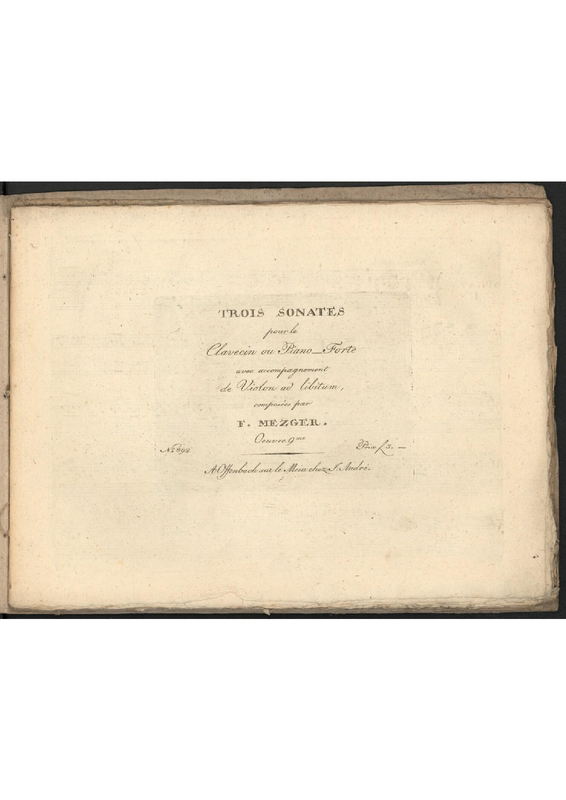 TROIS SONATES
pour le
Clavecin ou Piano_Forte
avec accompagnement
de Violon ad libitum,
composées par
F. MEZGER.
Oeuvre 9me
No. 892 Prix f. 3. —
A Offenbach sur le Mein chez J. André.